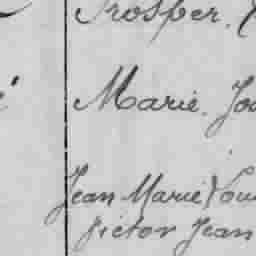 Prosper.
Marie. Jo
Jean Marie Lou
Victor Jean